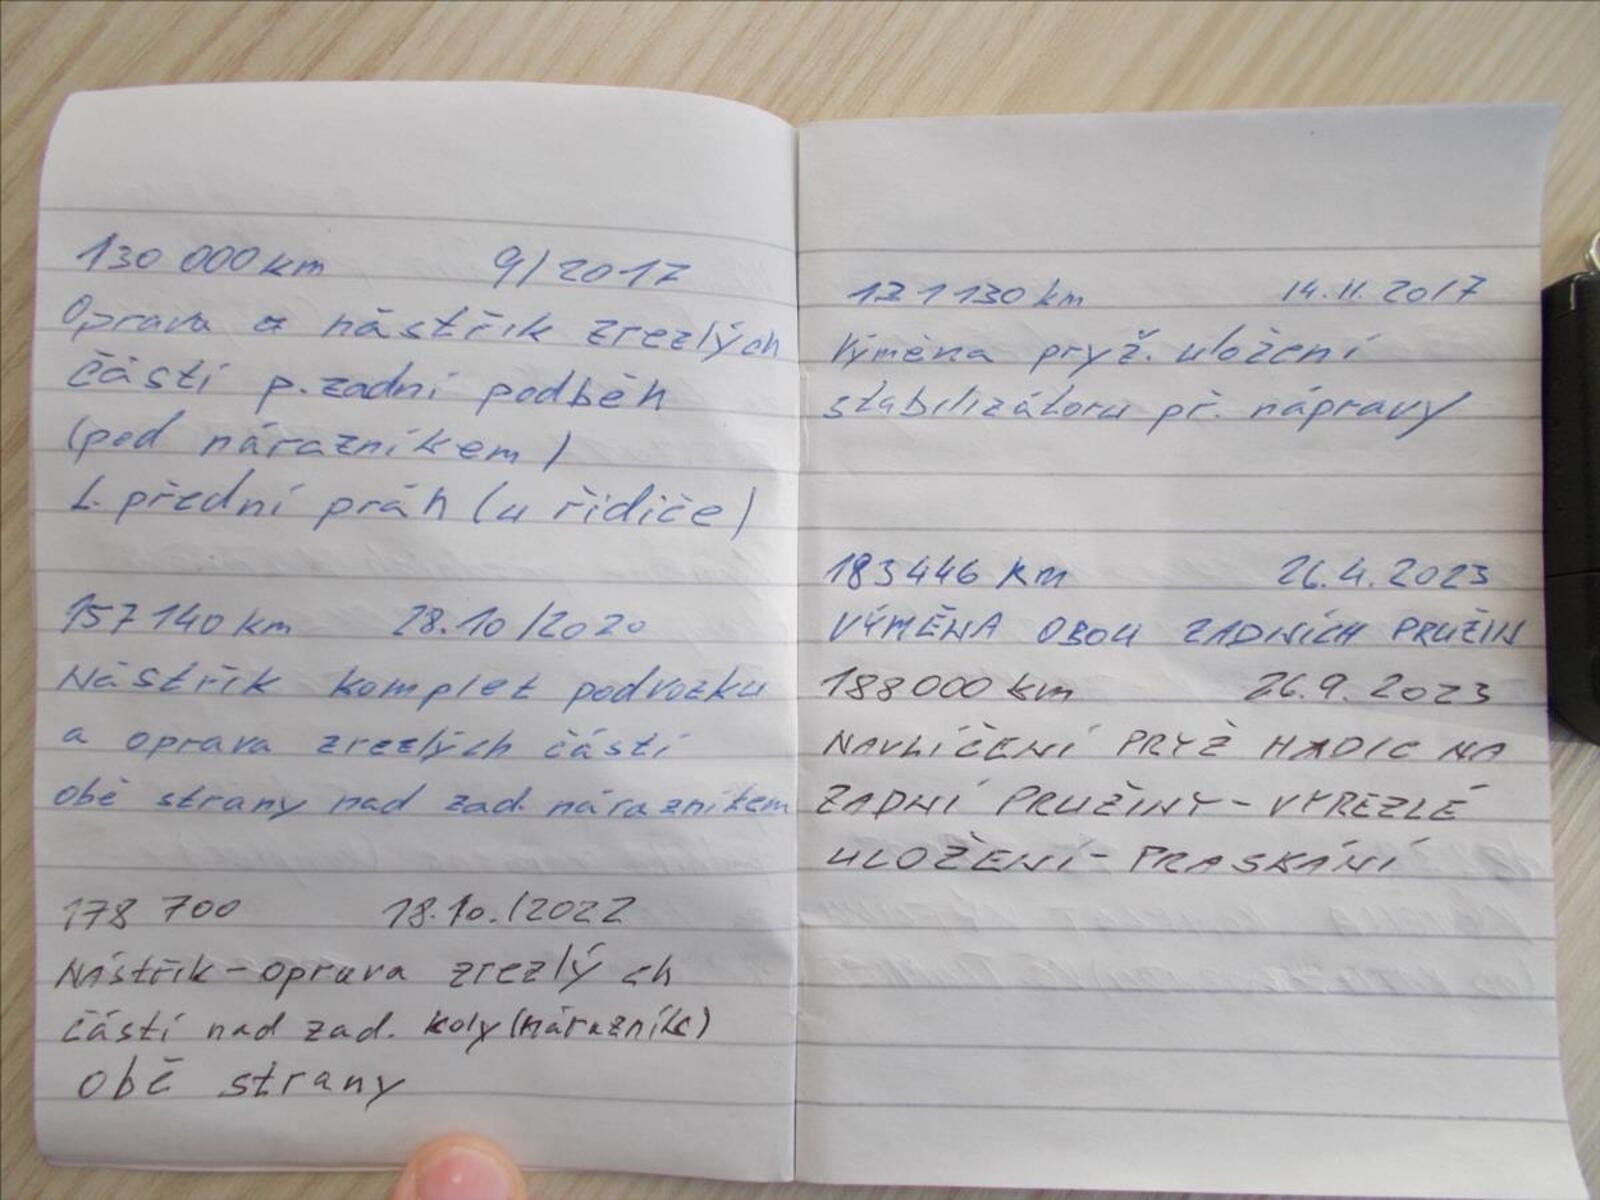 130 000 km 9/2017
Oprava a nástřik zrezlých
částí p. zadní podběh
(pod nárazníkem)
L. přední práh (u řidiče)
157 140 km 28.10/2020
Nástřik komplet podvozku
a oprava zrezlých částí
obě strany nad zad. nárazníkem
178 700 18.10./2022
Nástřik - oprava zrezlých
částí nad zad. koly (nárazník)
obě strany
131 130 km 14.11.2017
Výměna pryž. uložení
stabilizátoru př. nápravy
183 446 km 26.4.2023
VÝMĚNA OBOU ZADNÍCH PRUŽIN
188 000 km 26.9.2023
NAVLÍČENÍ PRYŽ HADIC NA
ZADNÍ PRUŽINY - VYREZLÉ
ULOŽENÍ - PRASKÁNÍ